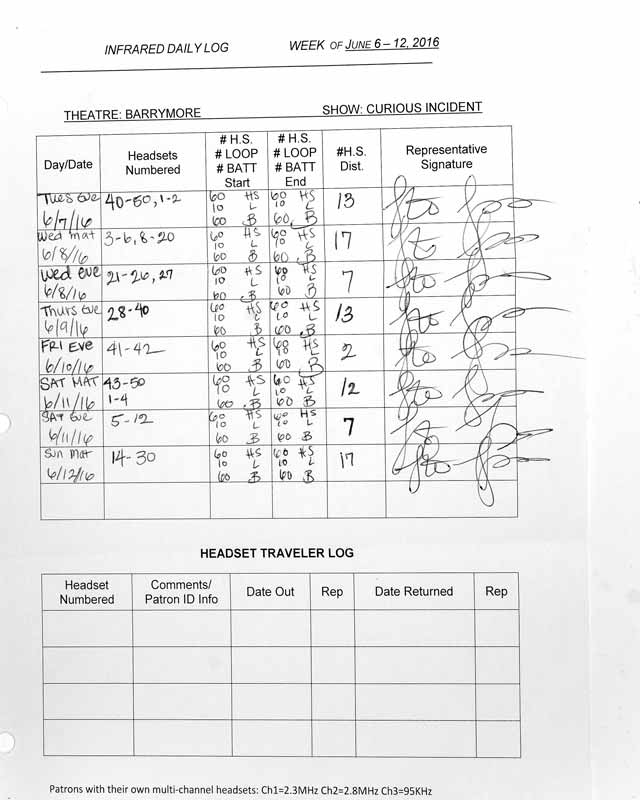 INFRARED DAILY LOG WEEK OF JUNE 6 – 12, 2016
THEATRE: BARRYMORE SHOW: CURIOUS INCIDENT
Day/Date Headsets Numbered # H.S. # LOOP # BATT Start # H.S. # LOOP # BATT End #H.S. Dist. Representative Signature
Tues Eve 6/7/16 40-50, 1-2 60 HS 10 L 60 B 60 HS 10 L 60 B 13
Wed mat 6/8/16 3-6, 8-20 60 HS 10 L 60 B 60 HS 10 L 60 B 17
Wed eve 6/8/16 21-26, 27 60 HS 10 L 60 B 60 HS 10 L 60 B 7
Thurs Eve 6/9/16 28-40 60 HS 10 L 60 B 60 HS 10 L 60 B 13
FRI Eve 6/10/16 41-42 60 HS 10 L 60 B 60 HS 10 L 60 B 2
SAT MAT 6/11/16 43-50 1-4 60 HS 10 L 60 B 60 HS 10 L 60 B 12
SAT Eve 6/11/16 5-12 60 HS 10 L 60 B 60 HS 10 L 60 B 7
Sun mat 6/12/16 14-30 60 HS 10 L 60 B 60 HS 10 L 60 B 17
HEADSET TRAVELER LOG
Headset Numbered Comments/ Patron ID Info Date Out Rep Date Returned Rep
Patrons with their own multi-channel headsets: Ch1=2.3MHz Ch2=2.8MHz Ch3=95KHz